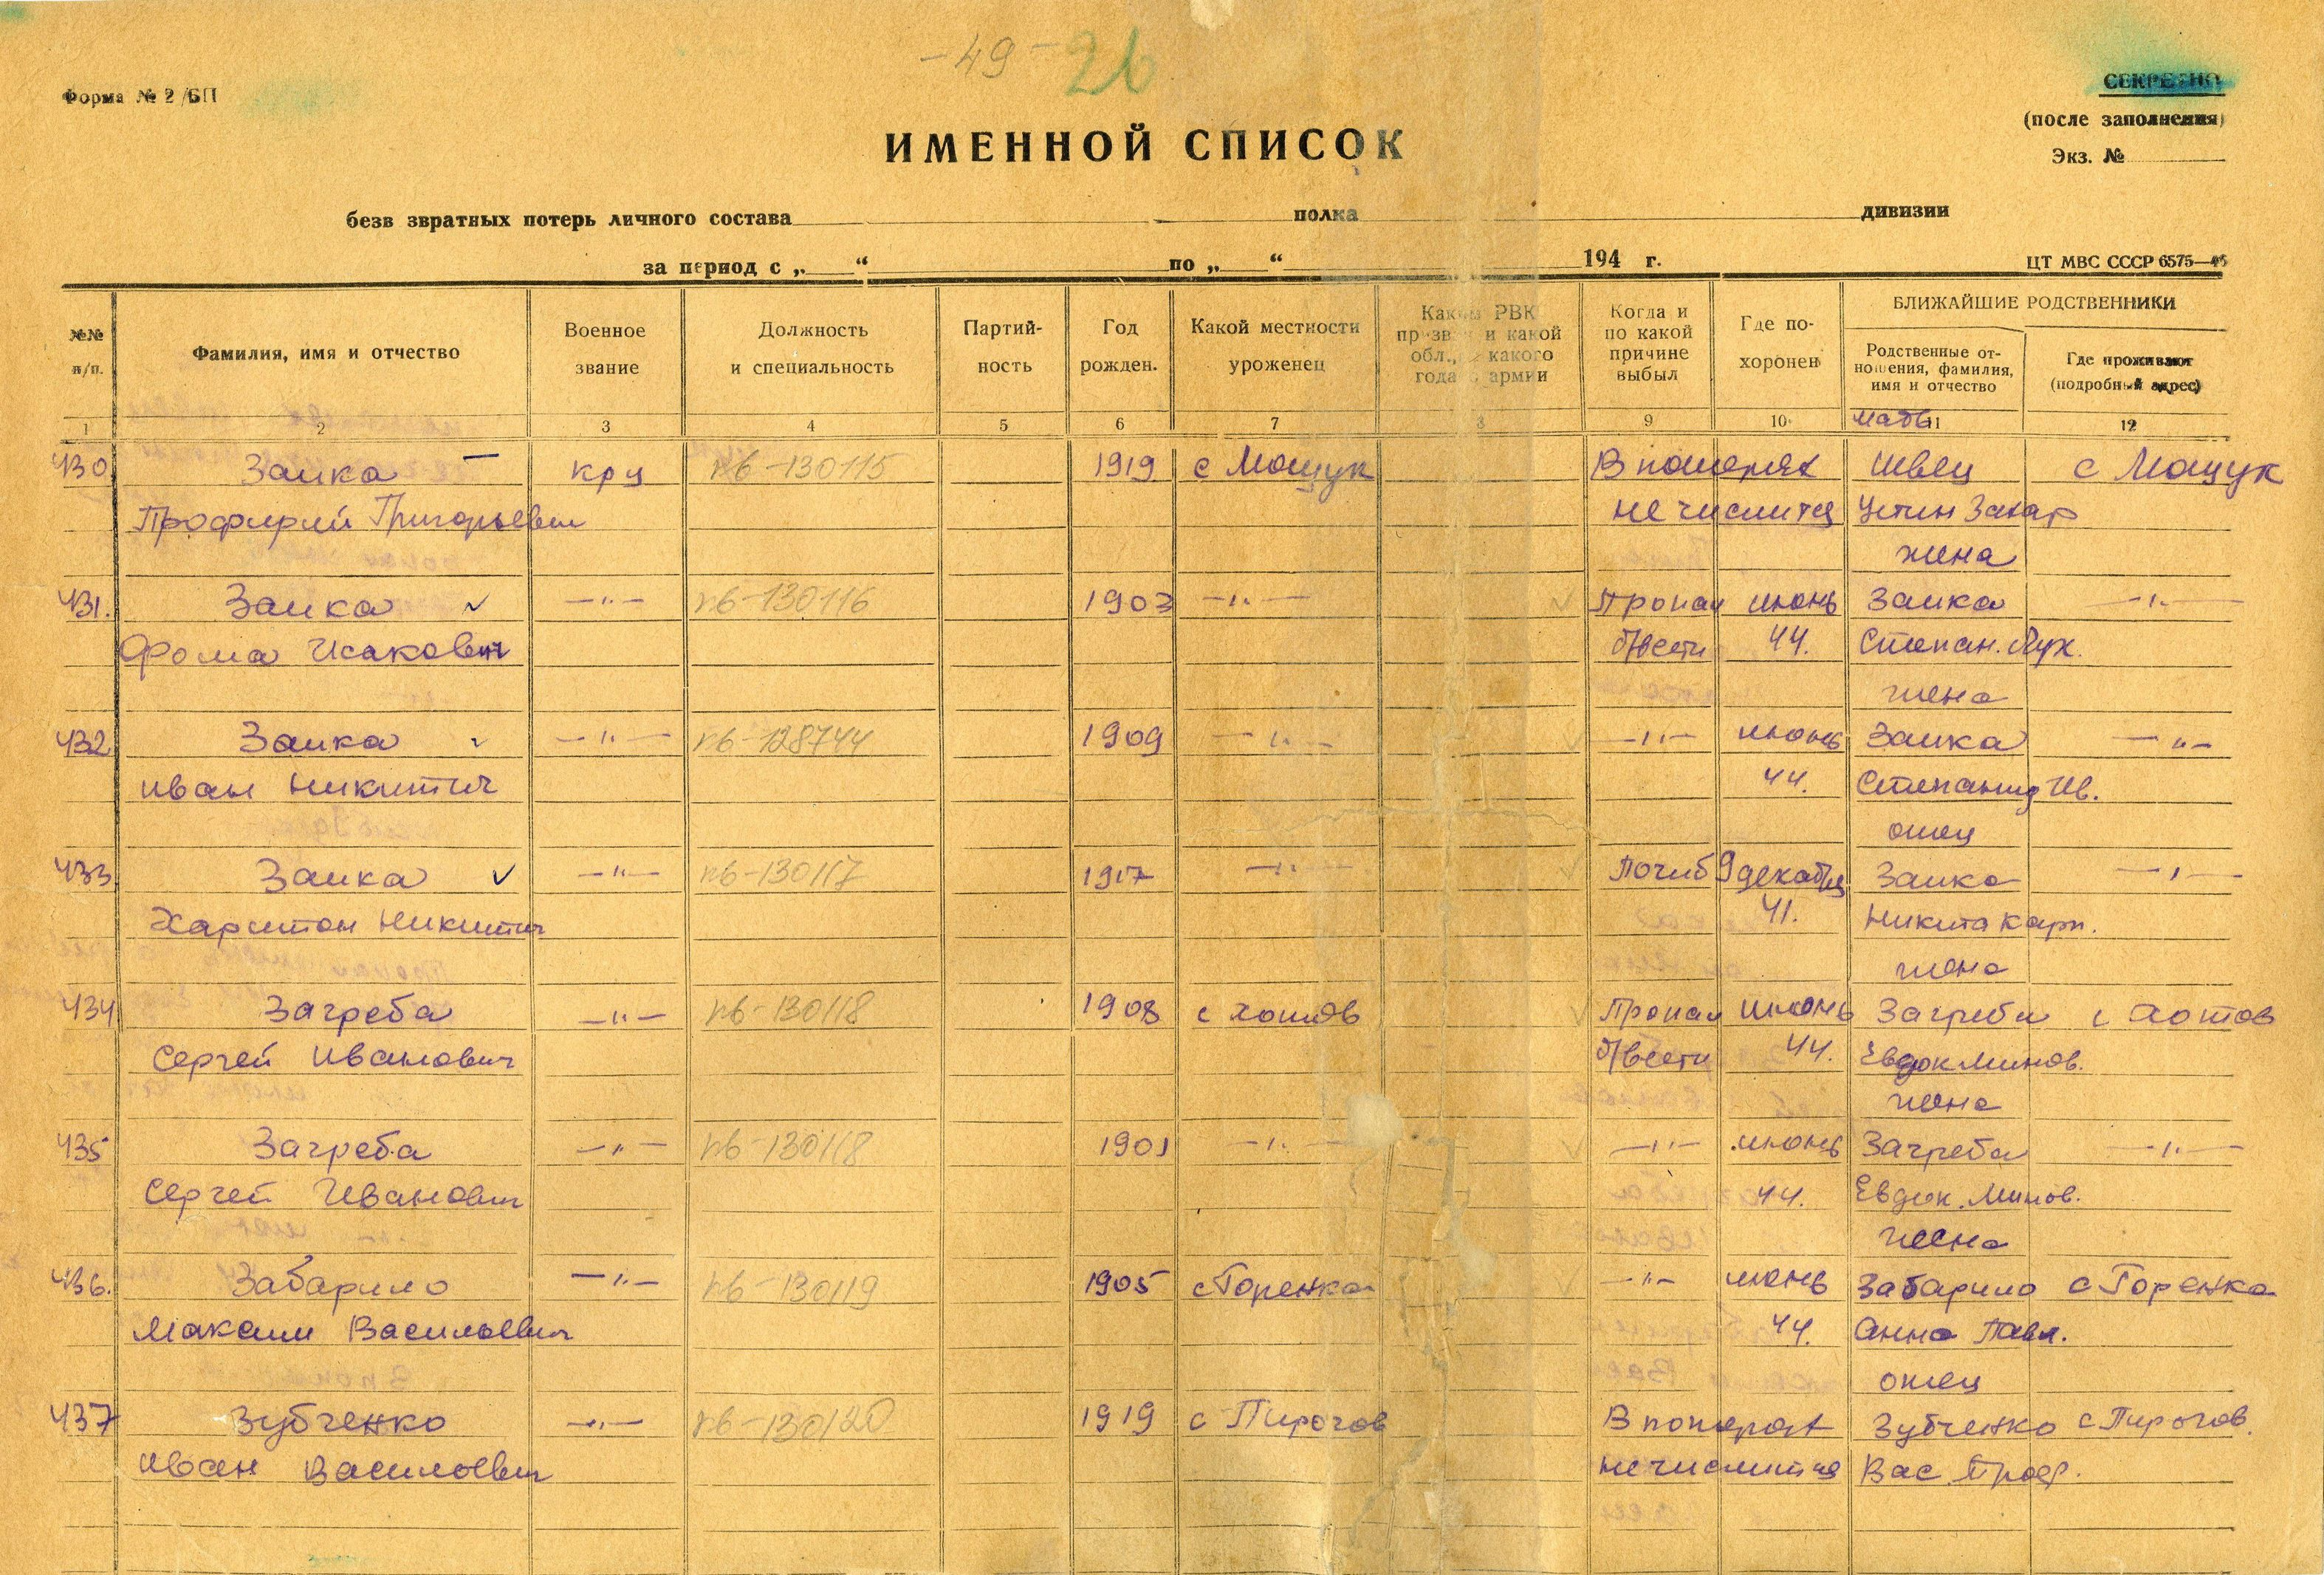 -49- 26
Форма № 2/БП
СЕКРЕТНО
(после заполнения)
Экз. №
ИМЕННОЙ СПИСОК
безв звратных потерь личного состава полка дивизии
за период с „ “ по „ “ 194 г.
ЦТ МВС СССР 6575—46
№№ п/п.
Фамилия, имя и отчество
Военное звание
Должность и специальность
Партий-ность
Год рожден.
Какой местности уроженец
Каким РВК призван и какой обл., с какого года в армии
Когда и по какой причине выбыл
Где по-хоронен
БЛИЖАЙШИЕ РОДСТВЕННИКИ
Родственные от-ношения, фамилия, имя и отчество
Где проживают (подробный адрес)
1 2 3 4 5 6 7 8 9 10 11 12
мать
430 Заика — крц пв-130115 1919 с Мощук В потерях Швец с Мощук
Профирий Григорьевич не числится Устин Захар
жена
431. Заика —"— пв-130116 1903 —"— Пропал июнь Заика —"—
Фома Исакович б/вести 44. Степан. Лух.
жена
432 Заика —"— пв-128744 1909 —"— —"— июнь Заика —"—
Иван Никитич 44. Степанид Ив.
отец
433 Заика —"— пв-130117 1917 —"— Погиб 9 декабря Заика —"—
Харитон Никитич 41. Никита Карп.
жена
434 Загреба —"— пв-130118 1908 с Хотов Пропал июнь Загреба с Хотов
Сергей Иванович б/вести 44. Евдок Минов.
жена
435 Загреба —"— пв-130118 1901 —"— —"— июнь Загреба —"—
Сергей Иванович 44. Евдок. Минов.
жена
436. Забарило —"— пв-130119 1905 с Горенка —"— июнь Забарило с Горенка
Максим Васильевич 44. Анна Павл.
отец
437 Зубченко —"— пв-130120 1919 с Пирогов В потерях Зубченко с Пирогов.
Иван Васильевич не числится Вас. Проф.